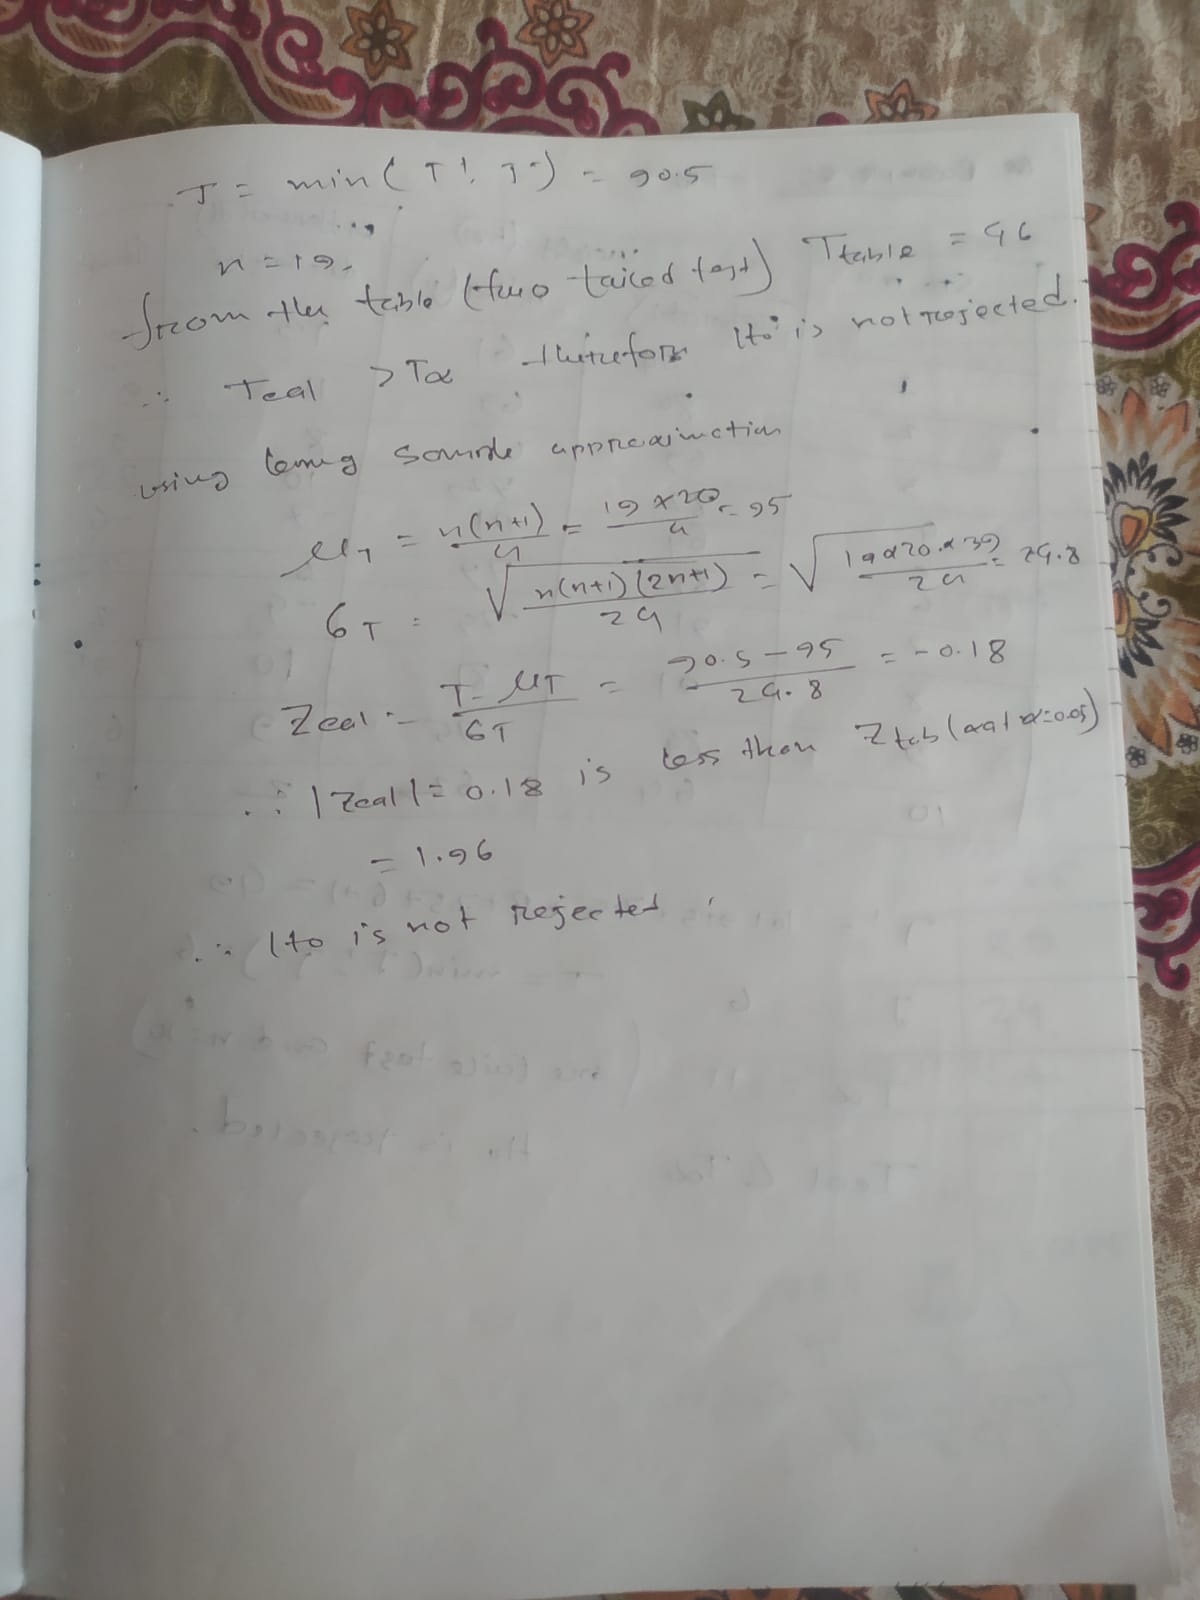 T = min ( T⁺, T⁻) = 90.5
n = 19.
from the table (two tailed test) Ttable = 46
∴ Tcal > Tα therefore H₀ is not rejected.
using large sample approximation
μT = n(n+1)/4 = 19×20/4 = 95
σT = √(n(n+1)(2n+1)/24) = √(19×20×39/24) = 24.8
Zcal = T-μT/σT = 90.5-95/24.8 = -0.18
∴ |Zcal| = 0.18 is less than Ztab (at α=0.05)
= 1.96
∴ H₀ is not rejected